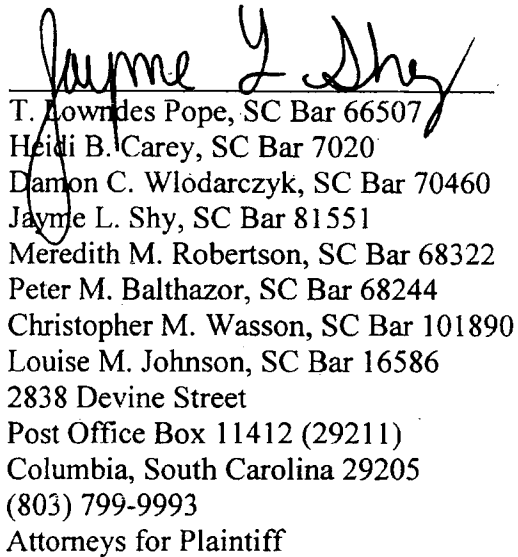 Jayme L Shy
T. Lowndes Pope, SC Bar 66507
Heidi B. Carey, SC Bar 7020
Damon C. Wlodarczyk, SC Bar 70460
Jayme L. Shy, SC Bar 81551
Meredith M. Robertson, SC Bar 68322
Peter M. Balthazor, SC Bar 68244
Christopher M. Wasson, SC Bar 101890
Louise M. Johnson, SC Bar 16586
2838 Devine Street
Post Office Box 11412 (29211)
Columbia, South Carolina 29205
(803) 799-9993
Attorneys for Plaintiff